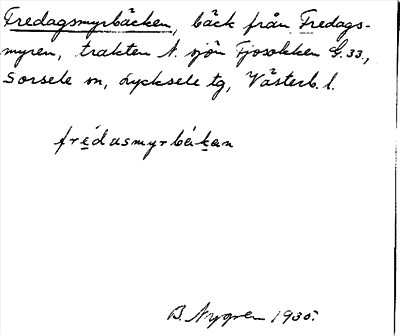 Fredagsmyrbäcken, bäck från Fredags-
myren, trakten N. sjön Fjosokken G. 33.,
Sorsele sn, Lycksele tg, Västerb. l.
frédasmyrbäkan
B. Nygren 1935.